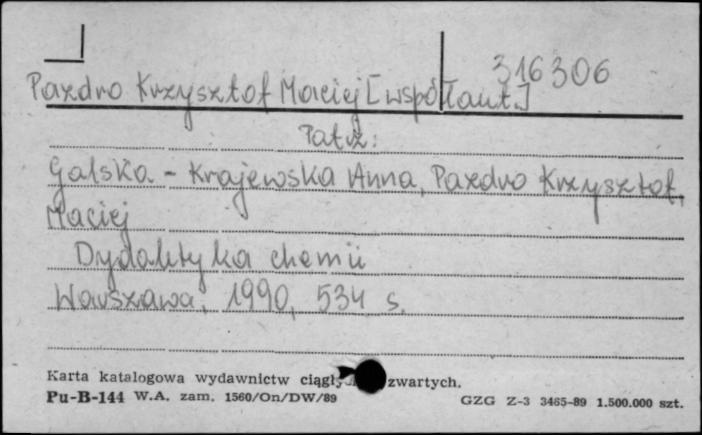 316306
Pazdro Krzysztof Maciej [współaut.]
Patrz:
Galska-Krajewska Anna, Pazdro Krzysztof,
Maciej
Dydaktyka chemii
Warszawa, 1990, 534 s.
Karta katalogowa wydawnictw zwartych.
Pu-B-144 W.A. zam. 1560/On/DW/89
GZG Z-3 3465-89 1.500.000 szt.